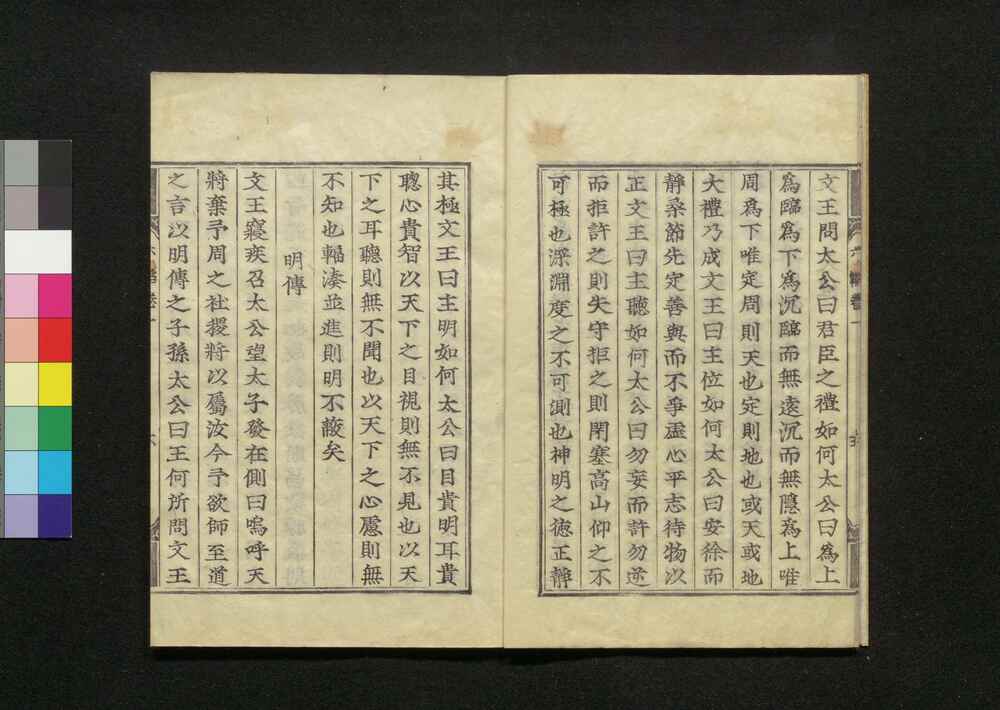 文王問太公曰君臣之禮如何太公曰爲上
爲臨爲下爲沉臨而無遠沉而無隱爲上唯
周爲下唯定周則天也定則地也或天或地
大禮乃成文王曰主位如何太公曰安徐而
靜柔節先定善與而不爭虛心平志待物以
正文王曰主聽如何太公曰勿妄而許勿逆
而拒許之則失守拒之則閉塞高山仰之不
可極也深淵度之不可測也神明之德正靜
其極文王曰主明如何太公曰目貴明耳貴
聰心貴智以天下之目視則無不見也以天
下之耳聽則無不聞也以天下之心慮則無
不知也輻湊並進則明不蔽矣
明傳
文王寢疾召太公望太子發在側曰嗚呼天
將棄予周之社稷將以屬汝今予欲師至道
之言以明傳之子孫太公曰王何所問文王
六韜卷一
六